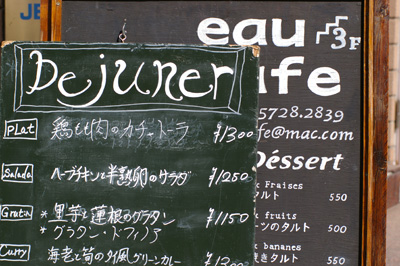 JE
eau
3F
afe
Dejuner
5728.2839
fe@mac.com
Plat 鶏もも肉のカチャトーラ ¥1300
Déssert
Salada ハーブチキンと半熟卵のサラダ ¥1250
Fraises
タルト 550
Gratin * 里芋と蓮根のグラタン ¥1150
* グラタン・ドフィノア
fruits
ーツのタルト 500
bananes
きタルト 500
Curry 海老と筍のタイ風グリーンカレー ¥1300